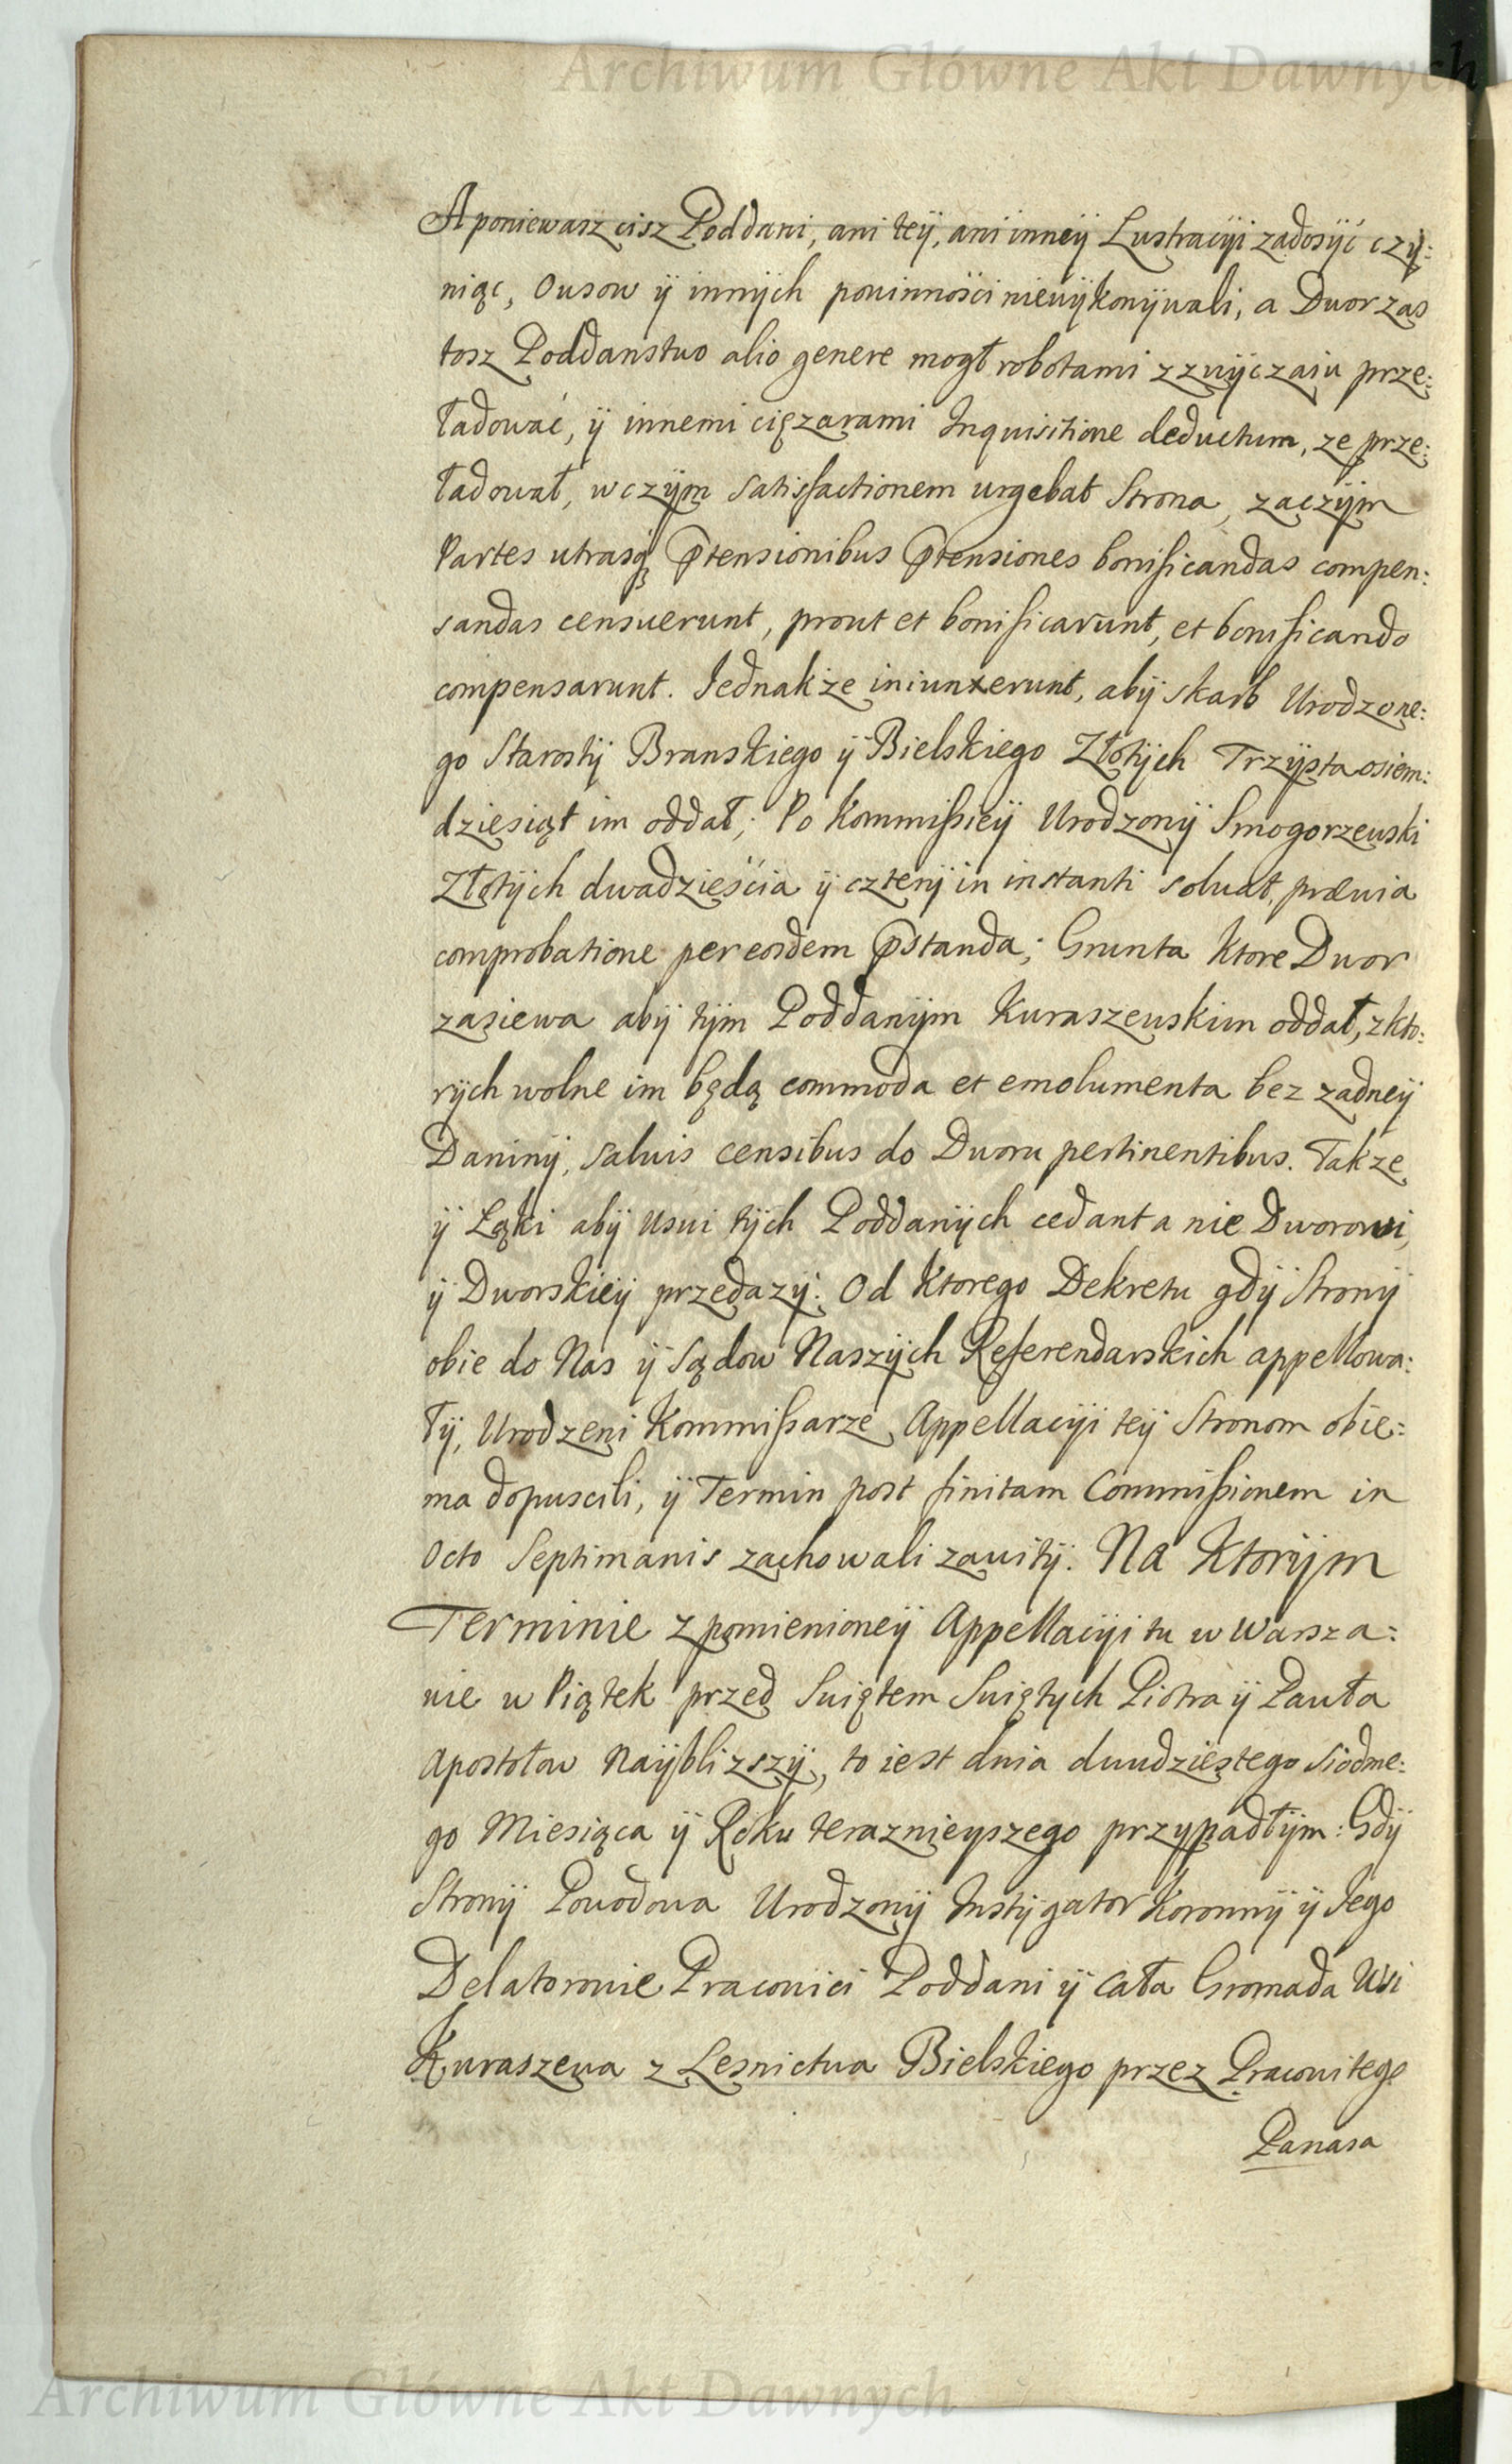 Archiwum Główne Akt Dawnych
A poniewasz cisz Poddani, ani teÿ, ani inneÿ Lustracÿi zadosÿć czÿ:
niąc, Owsow ÿ innÿch powinności niewÿkonÿwali, a Dwor zas
tosz Poddanstwo alio genere mogł robotami z zwÿczaiu prze:
ładować, ÿ innemi cięzarami Inquisitione deductum, ze prze:
ładował, w czÿm satisfactionem urgebat Strona, zaczÿm
Partes utrasq prtensionibus prtensiones bonificandas compen:
sandas censuerunt, prout et bonificarunt, et bonificando
compensarunt. Jednakże iniunxerunt, abÿ skarb Urodzone:
go Starostÿ Branskiego ÿ Bielskiego Złotÿch Trzÿsta osiem:
dziesiąt im oddał; Po Kommissieÿ Urodzonÿ Smogorzewski
Złotÿch dwadzieścia ÿ czterÿ in instanti soluat, prævia
comprobatione per eosdem prstanda; Grunta ktore Dwor
zasiewa abÿ tÿm Poddanÿm Kuraszewskim oddał, z kto:
rÿch wolne im będą commoda et emolumenta bez zadneÿ
Daninÿ, salvis censibus do Dworu pertinentibus. Takze
ÿ Łąki abÿ usui tÿch Poddanÿch cedant a nie Dworowi,
ÿ Dworskieÿ przedazÿ: Od ktorego Dekretu gdÿ Stronÿ
obie do Nas ÿ Sądow Naszÿch Referendarskich appellowa:
łÿ, Urodzeni Kommissarze Appellacÿi teÿ Stronom obie:
ma dopuscili, ÿ Termin post finitam Commissionem in
Octo Septimanis zachowali zawitÿ. Na ktorÿm
Terminie z pomienioneÿ Appellacÿi tu w Warsza:
wie w Piątek przed Swiętem Swiętych Piotra ÿ Pawła
Apostołow Naÿblizszÿ, to iest dnia dwudziestego siodme:
go Miesiąca ÿ Roku teraznieyszego przypadłÿm: Gdÿ
Stronÿ Powodowa Urodzonÿ Instÿgator Koronnÿ ÿ Jego
Delatorowie Pracowici Poddani ÿ cała Gromada Wsi
Kuraszewa z Lesnictwa Bielskiego przez Pracowitego
Panasa
Archiwum Główne Akt Dawnych